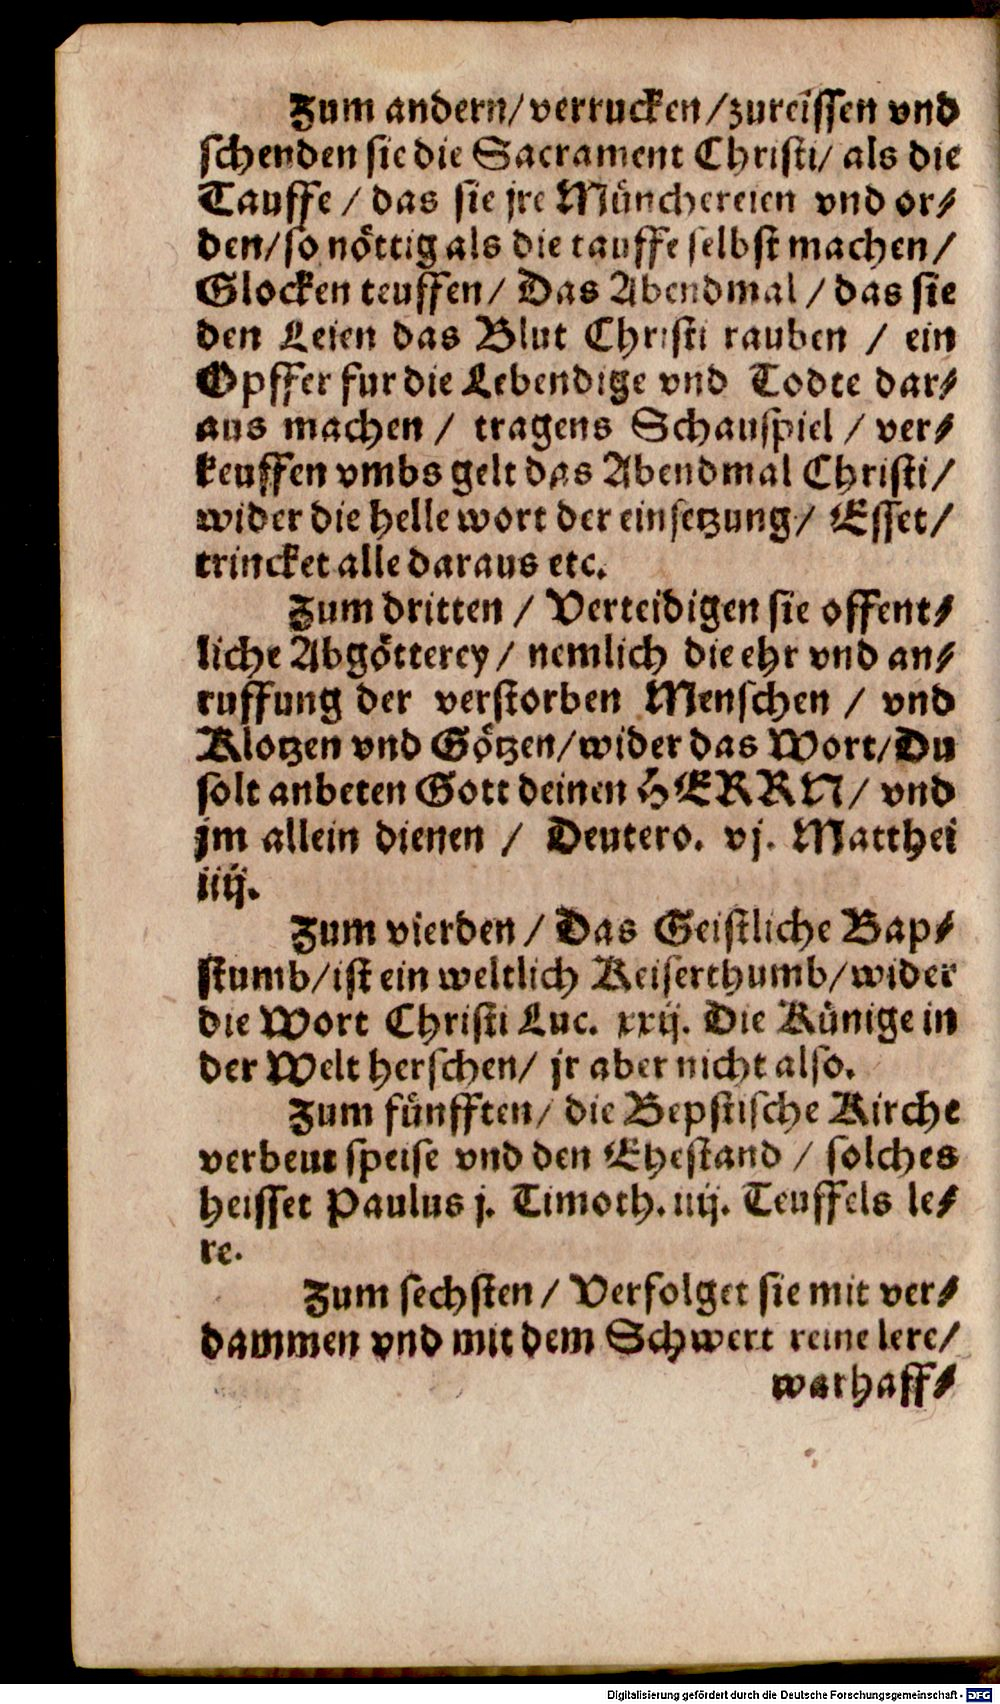 Zum andern/ verrucken /zureissen vnd
schenden sie die Sacrament Christi/ als die
Tauffe / das sie jre Münchereien vnd or⸗
den/ so nöttig als die tauffe selbst machen /
Glocken teuffen/ Das Abendmal / das sie
den Leien das Blut Christi rauben / ein
Opffer fur die Lebendige vnd Todte dar⸗
aus machen / tragens Schauspiel / ver⸗
keuffen vmbs gelt das Abendmal Christi/
wider die helle wort der einsetzung/ Esset/
trincket alle daraus etc.
Zum dritten / Verteidigen sie offent⸗
liche Abgötterey / nemlich die ehr vnd an⸗
ruffung der verstorben Menschen / vnd
Klotzen vnd Götzen/wider das Wort/Du
solt anbeten Gott deinen HERRN/ vnd
jm allein dienen / Deutero. vj. Matthei
iiij.
Zum vierden / Das Geistliche Bap⸗
stumb/ist ein weltlich Keiserthumb/wider
die Wort Christi Luc. xxij. Die Künige in
der Welt herschen/ jr aber nicht also.
Zum fünfften/ die Bepstische Kirche
verbeut speise vnd den Ehestand / solches
heisset Paulus j. Timoth. iiij. Teuffels le⸗
re.
Zum sechsten / Verfolget sie mit ver⸗
dammen vnd mit dem Schwert reine lere/
warhaff⸗
Digitalisierung gefördert durch die Deutsche Forschungsgemeinschaft - DFG